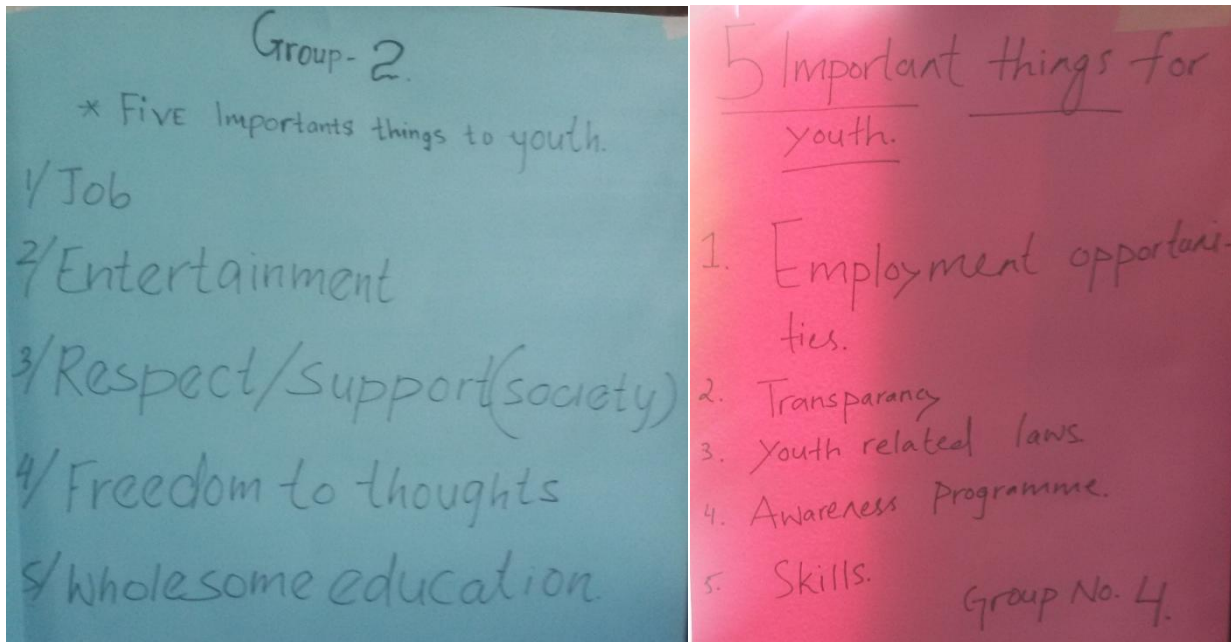 Group-2.
* Five Importants things to youth.
1/ Job
2/ Entertainment
3/ Respect/support(society)
4/ Freedom to thoughts
5/ Wholesome education.
5 Important things for
youth.
1. Employment opportuni-
ties.
2. Transparancy
3. Youth related laws
4. Awareness Programme.
5. Skills.
Group No. 4.